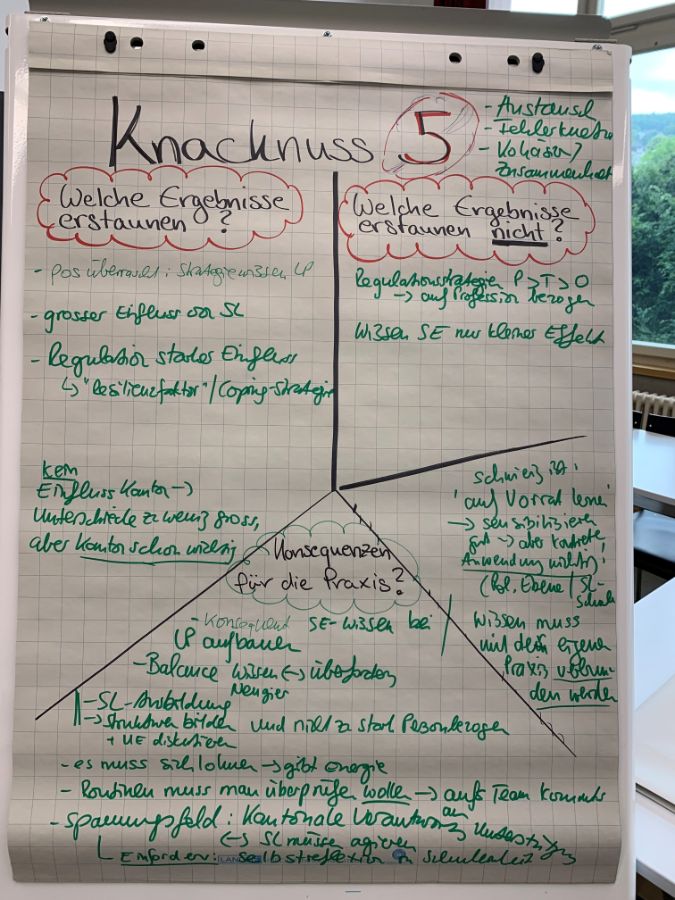 Knacknuss 5
- Austausch
- Fehlerkultur
- Kohäsion/
Zusammenhalt
Welche Ergebnisse
erstaunen?
- pos überrascht: Strategiewissen LP
- grosser Einfluss von SL
- Regulation starker Einfluss
↳ "Resilienzfaktor"/Coping-Strategie
kein
Einfluss Kanton →
Unterschiede zu wenig gross,
aber Kanton schon wichtig
Welche Ergebnisse
erstaunen nicht?
Regulationsstrategien P > T > O
→ auf Profession bezogen
Wissen SE nur kleiner Effekt
schwierig ist:
'auf Vorrat lernen'
→ sensibilisieren
gut → aber konkrete
Anwendung wichtig!
(Pol. Ebene / SL-
Schule
Wissen muss
mit dem eigenen
Praxis verbun-
den werden
Konsequenzen
für die Praxis?
- Konsequent SE-wissen bei
LP aufbauen
- Balance wissen ↔ überfordern
Neugier
- SL-Ausbildung
→ Strukturen bilden und nicht zu stark Personbezogen
+ UE diskutieren
- es muss sich lohnen → gibt energie
- Routinen muss man überprüfen wollen → aufs Team
- Spannungsfeld: Kantonale Verantwortung an
Unterstützung
↔ SL müsse agieren
Einfordern: Selbstreflexion in Schuleinheit